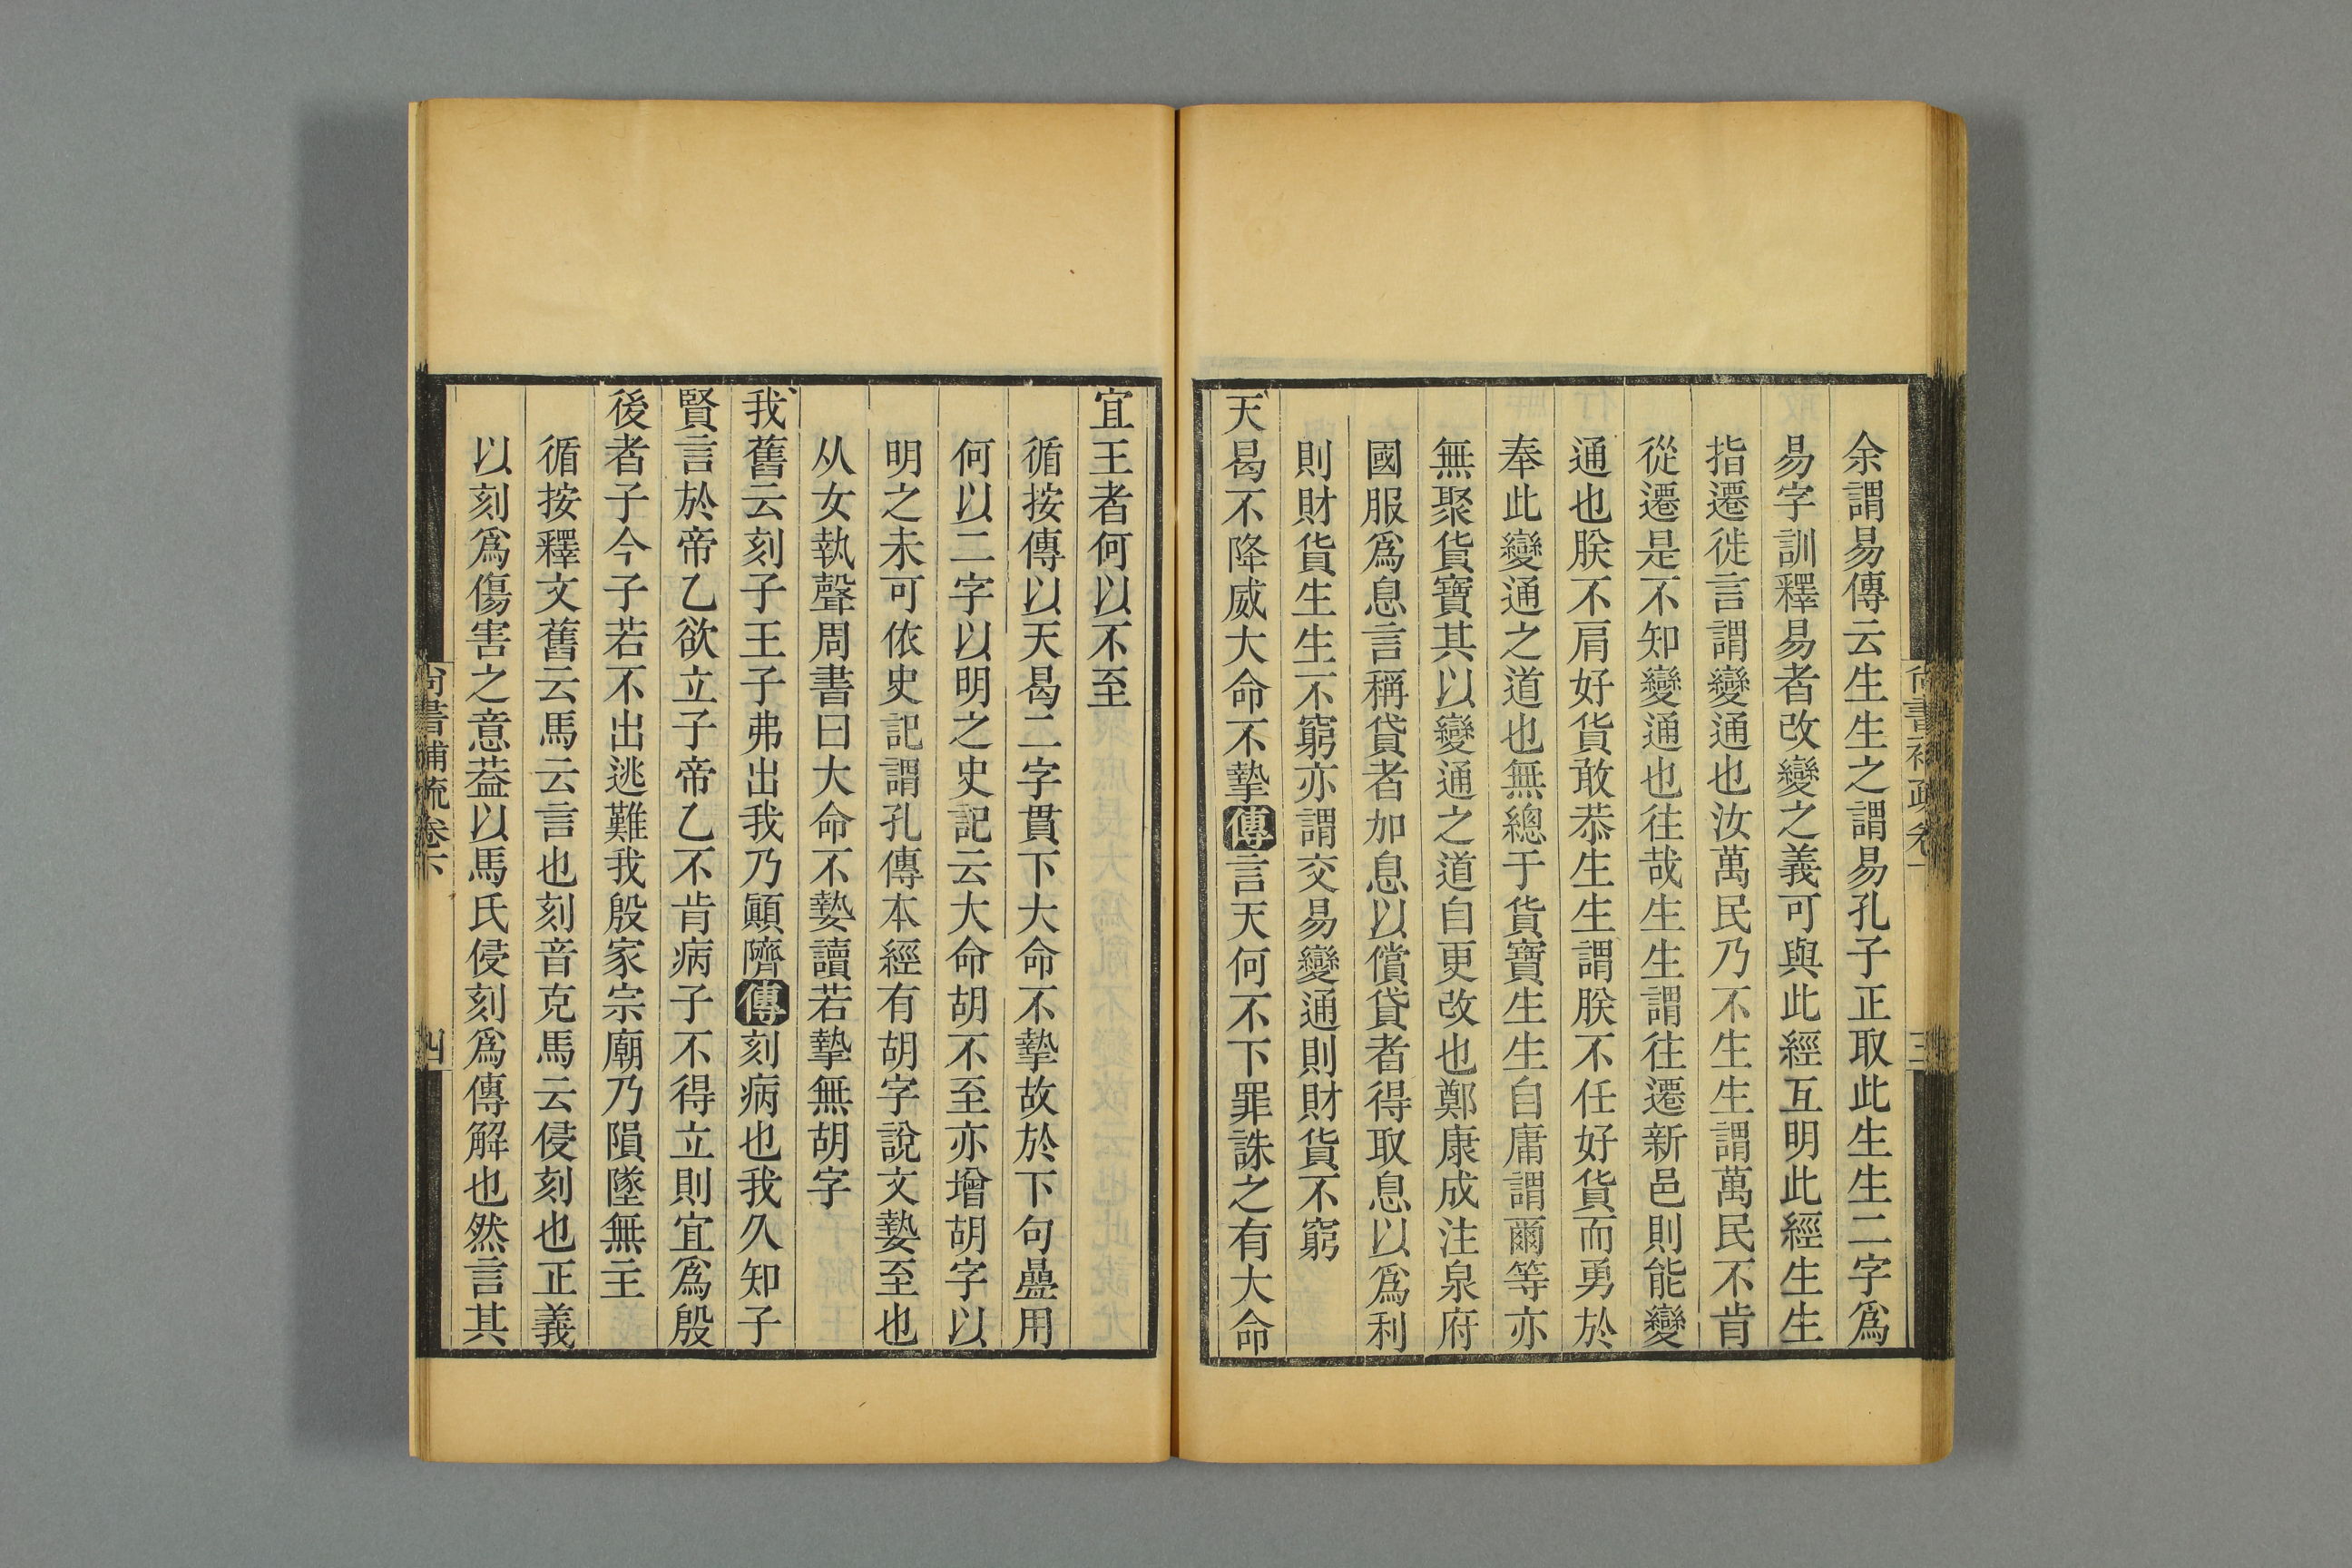 余謂易傳云生生之謂易孔子正取此生生二字爲
易字訓釋易者改變之義可與此經互明此經生生
指遷徙言謂變通也汝萬民乃不生生謂萬民不肯
從遷是不知變通也往哉生生謂往遷新邑則能變
通也朕不肩好貨敢恭生生謂朕不任好貨而勇於
奉此變通之道也無總于貨寶生生自庸謂爾等亦
無聚貨寶其以變通之道自更改也鄭康成注泉府
國服爲息言稱貸者加息以償貸者得取息以爲利
則財貨生生不窮亦謂交易變通則財貨不窮
天曷不降威大命不摯傳言天何不下罪誅之有大命
宜王者何以不至
循按傳以天曷二字貫下大命不摯故於下句疊用
何以二字以明之史記云大命胡不至亦增胡字以
明之未可依史記謂孔傳本經有胡字說文㜝至也
从女執聲周書曰大命不㜝讀若摯無胡字
我舊云刻子王子弗出我乃顚隮傳刻病也我久知子
賢言於帝乙欲立子帝乙不肯病子不得立則宜爲殷
後者子今子若不出逃難我殷家宗廟乃隕墜無主
循按釋文舊云馬云言也刻音克馬云侵刻也正義
以刻爲傷害之意葢以馬氏侵刻爲傳解也然言其
尙書補疏卷下
四